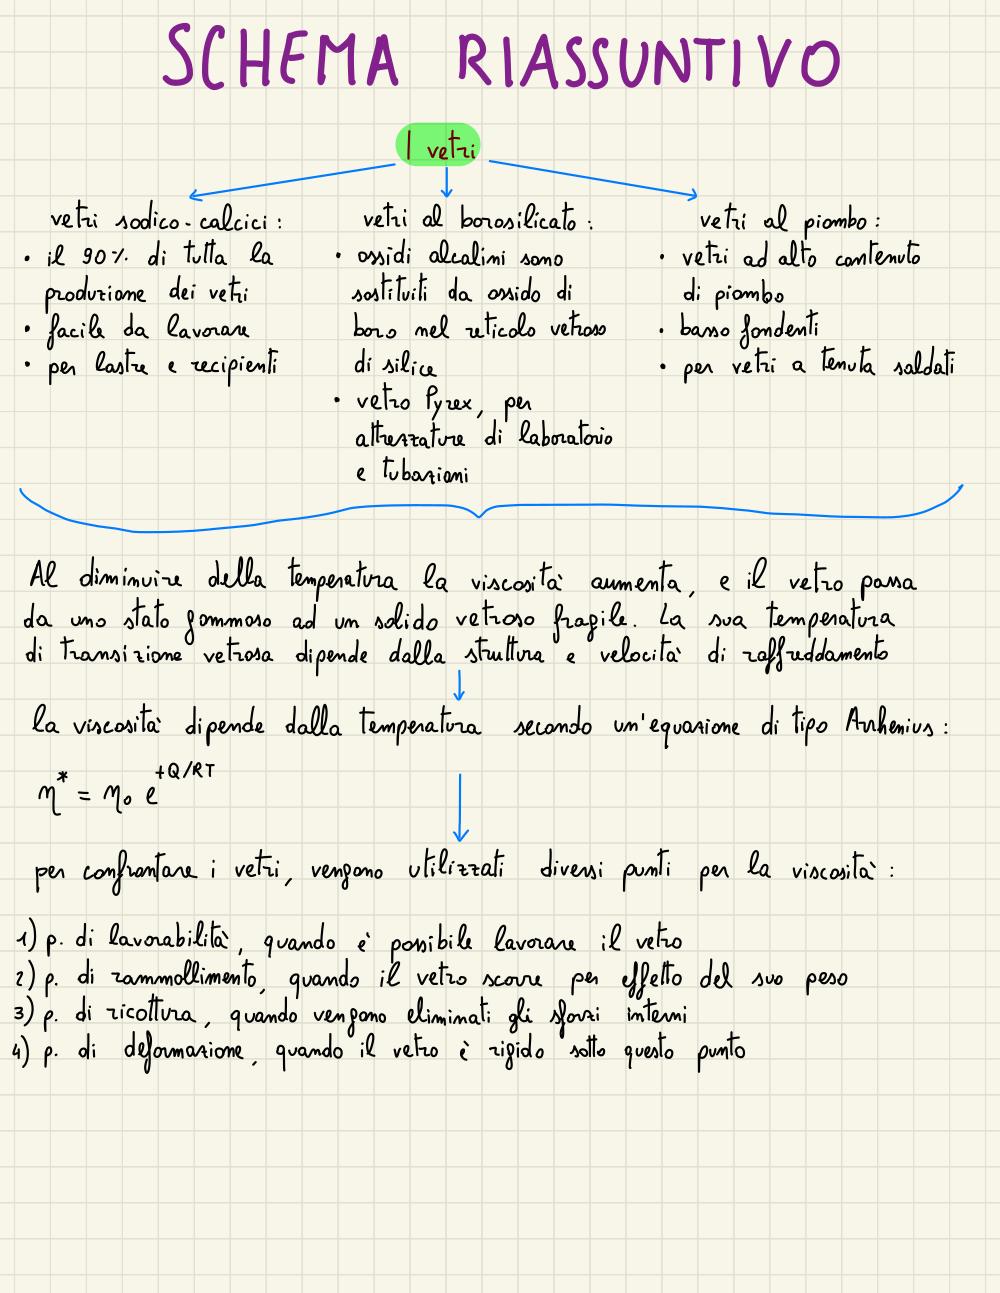 SCHEMA RIASSUNTIVO
I vetri
vetri sodico-calcici:
• il 90% di tutta la
produzione dei vetri
• facile da lavorare
• per lastre e recipienti
vetri al borosilicato:
• ossidi alcalini sono
sostituiti da ossido di
boro nel reticolo vetroso
di silice
• vetro Pyrex, per
attrezzature di laboratorio
e tubazioni
vetri al piombo:
• vetri ad alto contenuto
di piombo
• basso fondenti
• per vetri a tenuta saldati
Al diminuire della temperatura la viscosità aumenta, e il vetro passa
da uno stato gommoso ad un solido vetroso fragile. La sua temperatura
di transizione vetrosa dipende dalla struttura e velocità di raffreddamento
la viscosità dipende dalla temperatura secondo un'equazione di tipo Arrhenius:
η* = η₀ e^+Q/RT
per confrontare i vetri, vengono utilizzati diversi punti per la viscosità:
1) p. di lavorabilità, quando è possibile lavorare il vetro
2) p. di rammollimento, quando il vetro scorre per effetto del suo peso
3) p. di ricottura, quando vengono eliminati gli sforzi interni
4) p. di deformazione, quando il vetro è rigido sotto questo punto